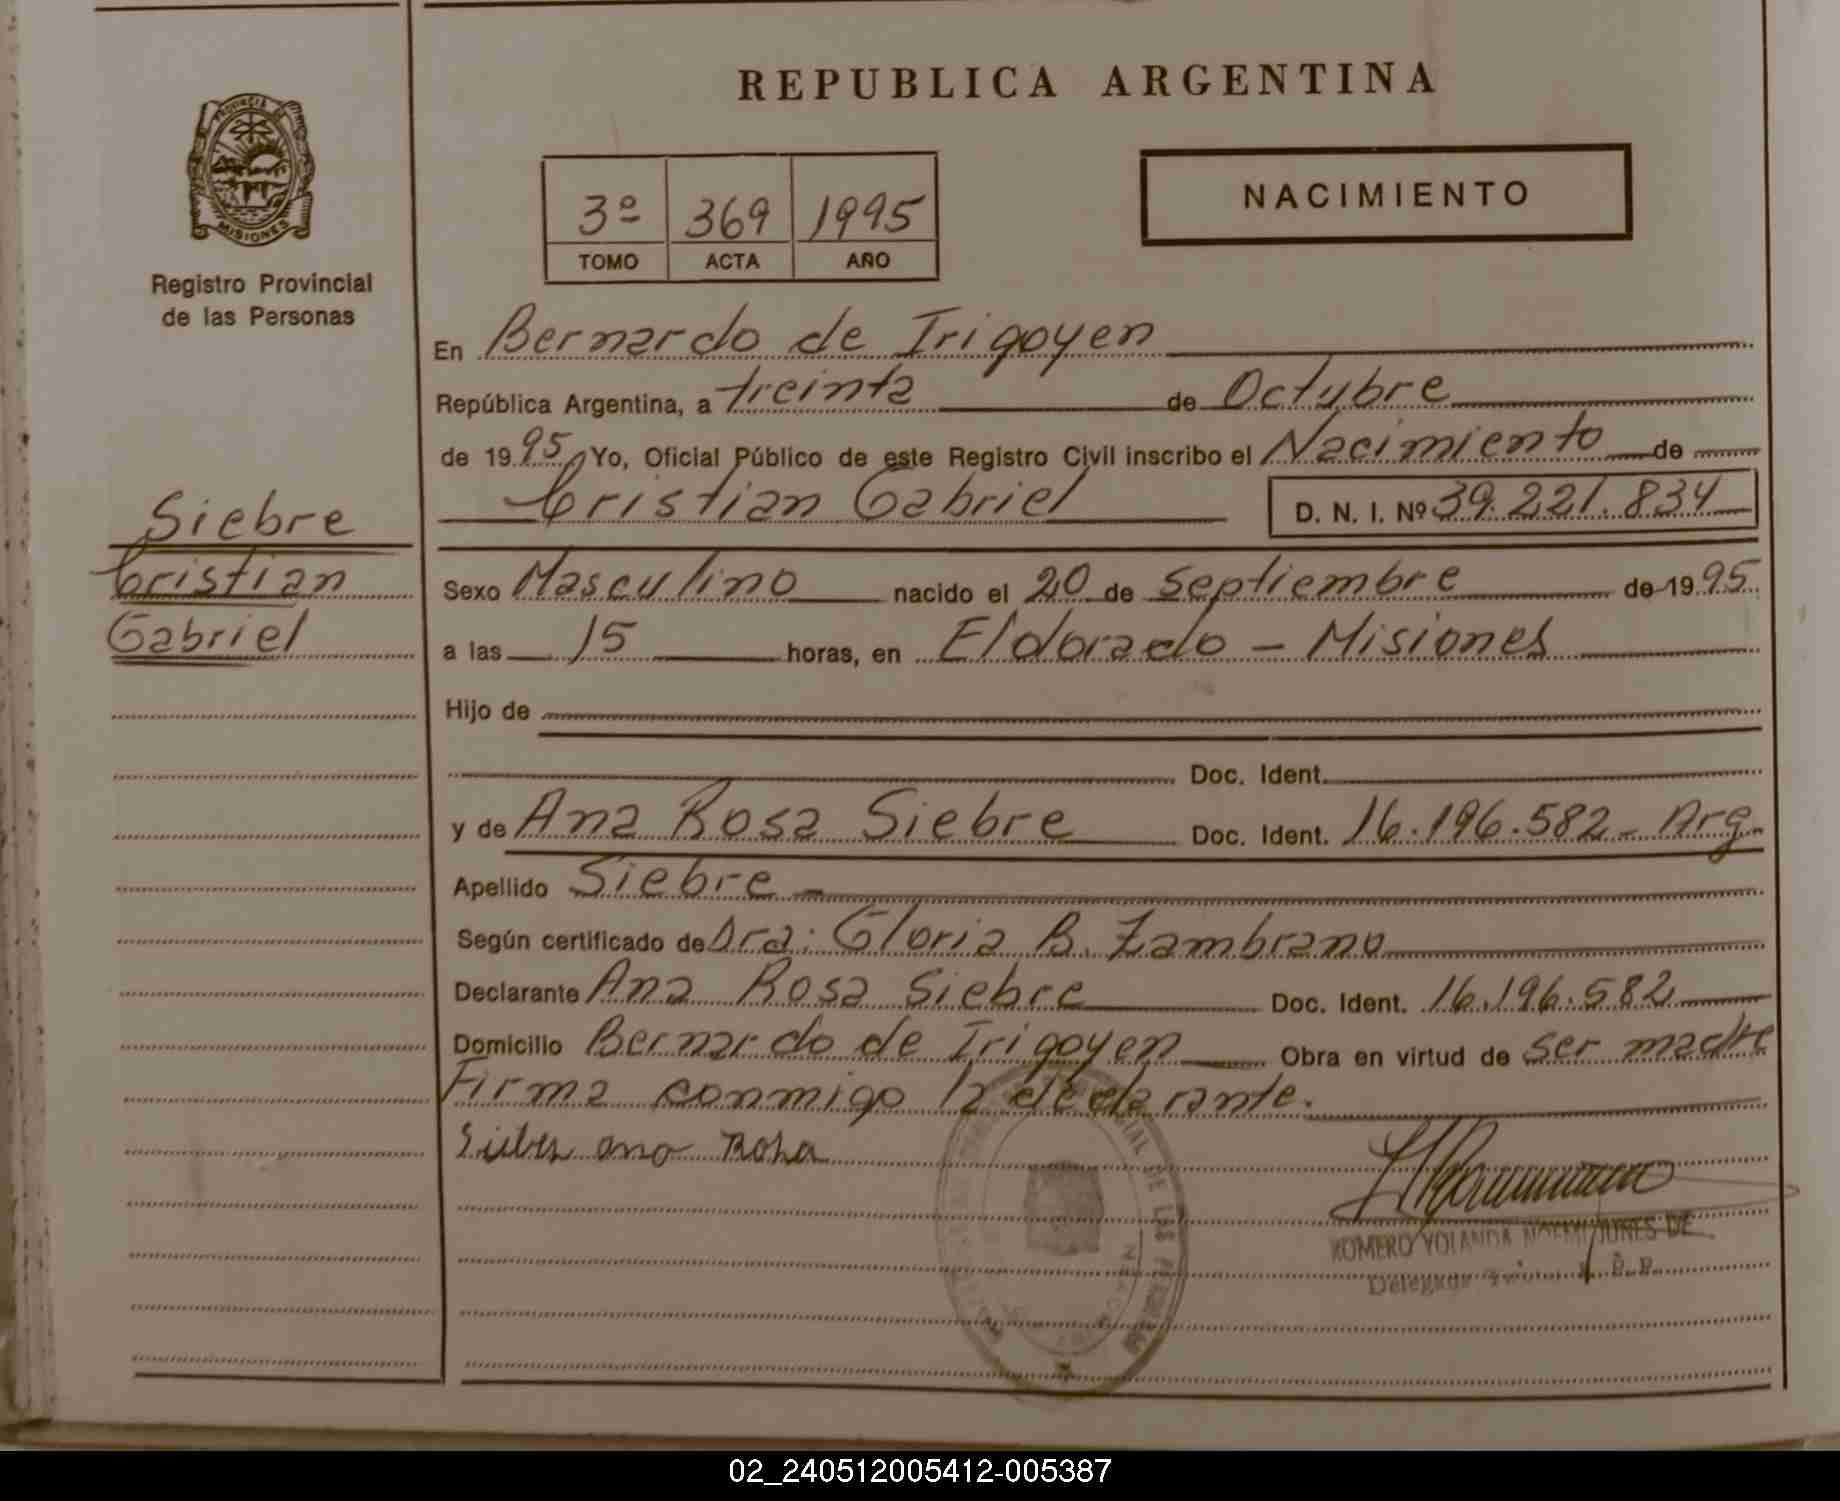 REPUBLICA ARGENTINA
PROVINCIA DE
MISIONES
Registro Provincial
de las Personas
3º 369 1995
TOMO ACTA AÑO
NACIMIENTO
En Bernardo de Irigoyen
República Argentina, a treinta de Octubre
de 1995 Yo, Oficial Público de este Registro Civil inscribo el Nacimiento de
Cristian Gabriel D. N. I. Nº 39.221.834
Siebre
Cristian
Gabriel
Sexo Masculino nacido el 20 de Septiembre de 1995
a las 15 horas, en Eldorado - Misiones
Hijo de
Doc. Ident.
y de Ana Rosa Siebre Doc. Ident. 16.196.582 - Arg.
Apellido Siebre
Según certificado de Dra: Gloria B. Zambrano
Declarante Ana Rosa Siebre Doc. Ident. 16.196.582
Domicilio Bernardo de Irigoyen Obra en virtud de ser madre
Firma conmigo la declarante.
ana Rosa
ROMERO YOLANDA NOEMI JUNES DE
02_240512005412-005387